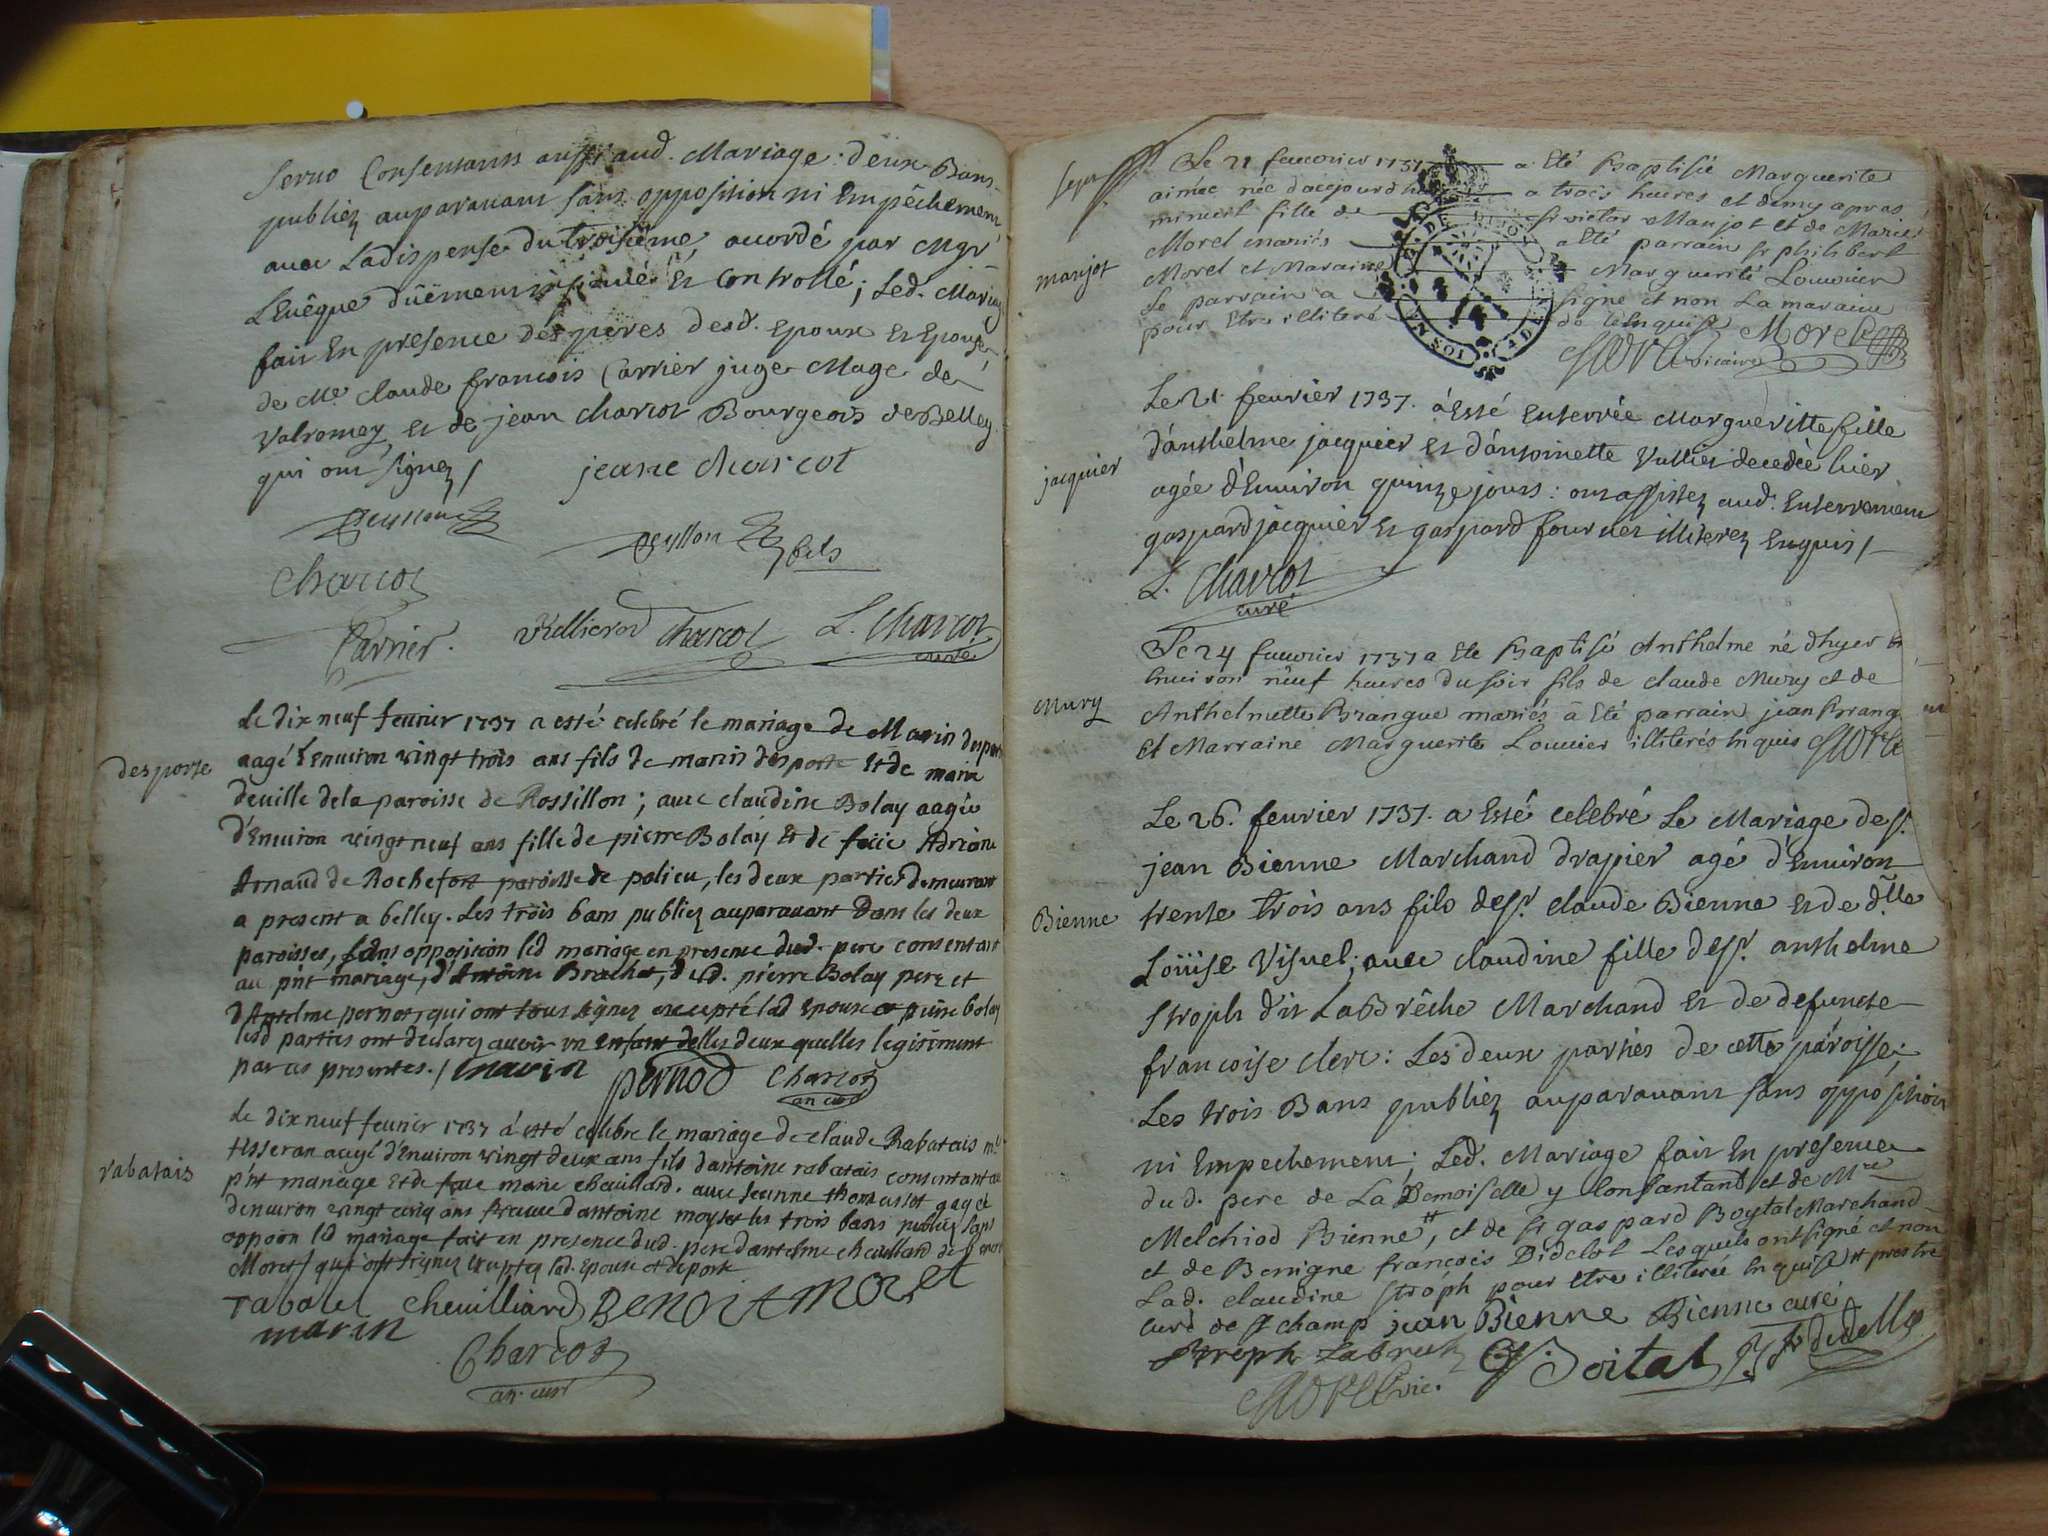 Servo Consentants aussi aud. Mariage: deux Bans
publiez auparavant sans opposition ni Empêchement,
avec La dispense du troisième, accordé par Mgr
L'Evêque düement insinuée Et Controllé; Led. Mariage
fait En presence des peres desd. Epoux Et Epouse,
de Me. claude francois Carrier juge Mage de
Valromey, Et de jean charcot Bourgeois de Belley
qui ont signez /
jeane charcot
peysson fils
Charcot
Carrier.
Charcot
L. Charcot
curé
desporte
Le dix neuf fevrier 1737 a esté celebré le mariage de Marin desporte
aagé d'Environ vingt trois ans fils de marin desporte Et de marie
deville dela paroisse de Rossillon; avec claudine Bolay aagée
d'Environ vingt neuf ans fille de pierre Bolay Et de feüe Adriane
Arnaud de Rochefort paroisse de polieu, les deux parties demeurant
a present a belley. Les trois bans publiez auparavant Dans les deux
paroisses, sans opposition led mariage en presence dud. pere consentant
au pnt mariage, d'Antoine Brachet, dud. pierre Bolay pere et
d'Antelme pernot, qui ont tous signez excepté lad Epouse et pierre bolay
lesd parties ont declarez avoir un enfant d'elles deux quelles legitiment
par ces presentes. / marin
pernod Charcot
an curé
rabatais
Le dix neuf fevrier 1737 a esté celebre le mariage de claude Rabatais mre
tisseran aagé d'Environ vingt deux ans fils d'antoine rabatais consentant au
pnt mariage Et de feue marie cheuillard. avec Jeanne thomasset aagée
denviron vingt cinq ans veuve d'antoine moyret les trois bans publiez sans
oppoon led mariage fait en presence dud. pere d'antelme cheuillard de benoit
Moret qui ont signez exceptez lad. epouse et deporte
rabatel cheuilliard BENOit MORet
marin
Charcot
an. curé
manjot
Le 21 fevvrier 1737 a Eté Baptisée Marguerite
aimée née d'aujourdhuy a trois heures et demy apres
minuit fille de Sr victor Manjot et de Marie
Morel mariés a Eté parrain Sr philibert
Morel et Maraine Marguerite Louvier
Le parrain a signé et non La maraine
pour Etre illiteré de ce Enquise Morel
Morel vicaire
jacquier
Le 21. fevrier 1737. a Esté Enterrée Margueritte fille
d'anthelme jacquier Et d'antoinette Vullier decedée hier
agée d'Environ quinze jours: ont assistez aud. Enterrement
gaspard jacquier Et gaspard fournet illiterez Enquis /
L. Charcot
curé
Mury
Le 24 fevvrier 1737 a Ete Baptisé Anthelme né d'hyer
Environ neuf heures du soir fils de claude Mury et de
Anthelmette Brangue mariés a Eté parrain jean Brang
et Marraine Marguerite Louvier illiterés Enquis Morel
Bienne
Le 26. fevrier 1737. a Esté celebré Le Mariage de Sr.
jean Bienne Marchand drapier agé d'Environ
trente trois ans fils de Sr. claude Bienne et de dlle
Loüise Visuel; avec claudine fille de Sr. anthelme
Stroph dit LaBrêche Marchand Et de defuncte
francoise clerc: Les deux parties de cette paroisse;
Les trois Bans publiez auparavant sans opposition
ni Empechement; Led. Mariage fait En presence
du d. pere de La Demoiselle y Consantant et de Mre
Melchiod Bienne #, et de Sr gaspard Boytal Marchand
et de Benigne françois Didelot Lesquels ont signé et non
Lad. claudine Stroph pour Etre illiterée Enquise # prestre
curé de St champ jean Bienne Bienne curé
Stroph Labreche G Boitat
Morel vic.